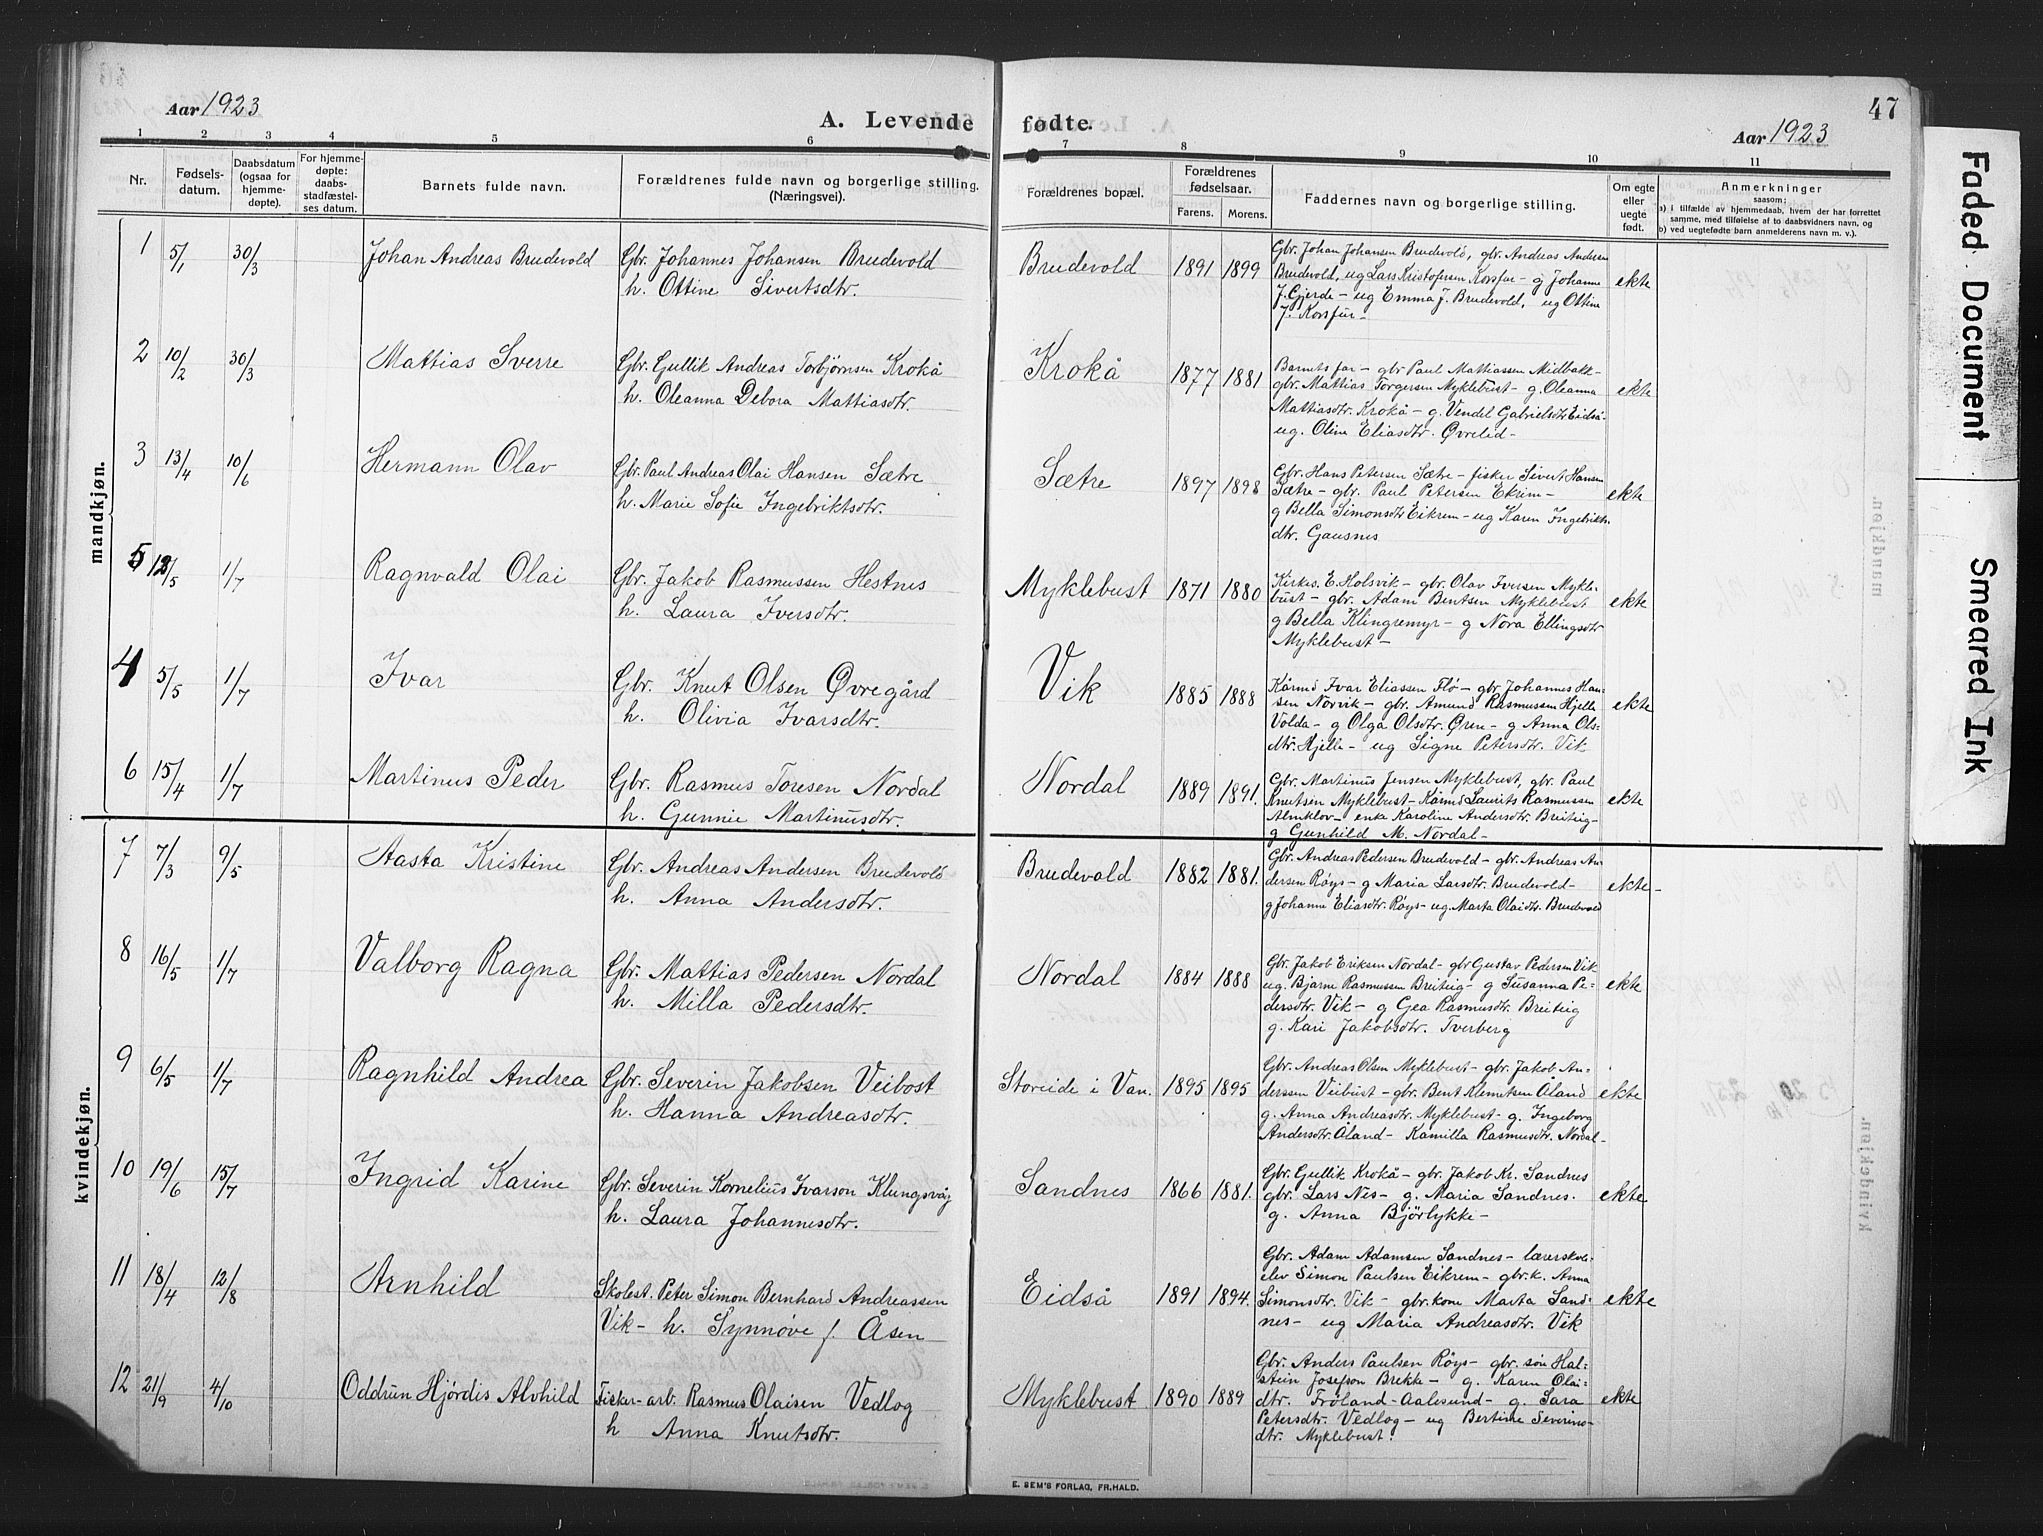 47
Aar 1923
A. Levende fødte.
Aar 1923
1 2 3 4 5 6 7 8 9 10 11
Nr.
Fødsels-
datum.
Daabsdatum
(ogsaa for
hjemme-
døpte).
For hjemme-
døpte:
daabs-
stadfæstel-
ses datum.
Barnets fulde navn.
Forældrenes fulde navn og borgerlige stilling.
(Næringsvei).
Forældrenes bopæl.
Forældrenes
fødselsaar.
Farens. Morens.
Faddernes navn og borgerlige stilling.
Om egte
eller
uegte
født.
Anmerkninger
saasom:
a) i tilfælde av hjemmedaab, hvem der har forrettet
samme, med tilføielse af to daabsvidners navn, og
b) ved uegtefødte barn anmelderens navn m. v.).
mandkjøn.
1 5/1 30/3 Johan Andreas Brudevold
Gbr. Johannes Johansen Brudevold
h. Ottine Sivertsdtr.
Brudevold 1891 1899
Gbr. Johan Johansen Brudevold, gbr. Andreas Andersen
Brudevold, ug Lars Kristofersen Korsfur - g Johanne
J. Gjerde - ug Emma J. Brudevold, ug Ottine
J. Korsfur -
ekte
2 10/2 30/3 Mattias Sverre
Gbr. Gullik Andreas Torbjørnsen Krokå
h. Oleanna Debora Mattiasdtr.
Krokå 1877 1881
Barnets far - gbr Paul Mattiassen Midbakk-
gbr. Mattias Torgersen Myklebust - g Oleanna
Mattiasdtr. Krokå - g. Vendel Gabrielsdtr Eidså-
ug. Oline Eliasdtr. Øvrelid -
ekte
3 13/4 10/6 Hermann Olav
Gbr. Paul Andreas Olai Hansen Sætre
h. Marie Sofie Ingebriktsdtr.
Sætre 1897 1898
Gbr. Hans Petersen Sætre - fisker Sivert Hansen
Sætre - gbr. Paul Petersen Ekrem -
g Bella Simonsdtr Eikrem - ug Karen Ingebrikts
dtr. Gausnes
ekte
5 /5 1/7 Ragnvald Olai
Gbr. Jakob Rasmussen Hestnes
h. Laura Iversdtr.
Myklebust 1871 1880
Kirkes. E. Holsvik - gbr. Olav Iversen Mykle-
bust - gbr. Adam Bentsen Myklebust
g Bella Klingremyr - g Nora Ellingsdtr
Myklebust -
ekte
4 5/5 1/7 Ivar
Gbr. Knut Olsen Øvregård
h. Olivia Ivarsdtr.
Vik 1885 1888
Kårmd Ivar Eliassen Flø - gbr Johannes Han-
sen Norvik - gbr. Amund Rasmussen Hjelle
Volda - g Olga Olsdtr. Øren - g Anna Ols-
dtr. Hjelle - ug Signe Petersdtr. Vik
ekte
6 15/4 1/7 Martinus Peder
Gbr. Rasmus Toresen Nordal
h. Gunnie Martinusdtr.
Nordal 1889 1891.
Gbr. Martinus Jensen Myklebust, gbr. Paul
Knutsen Myklebust - Kårmd Laurits Rasmussen
Almklov - enke Karoline Andersdtr. Breiteig -
g Gunhild M. Nordal -
ekte
kvindekjøn.
7 7/3 9/5 Aasta Kristine
Gbr. Andreas Andersen Brudevold
h. Anna Andersdtr.
Brudevold 1882 1881.
Gbr. Andreas Pedersen Brudevold - gbr. Andreas An-
dersen Røys - g Maria Larsdtr. Brudevold -
g Johanne Eliasdtr. Røys - ug. Marta Olaidtr. Brudevold
ekte -
8 16/5 1/7 Valborg Ragna
Gbr. Mattias Pedersen Nordal
h. Milla Pedersdtr.
Nordal 1884 1888
Gbr. Jakob Eriksen Nordal - gbr Gustav Pedersen Vik
ug. Bjarne Rasmussen Breiteig - g Susanna Pe-
dersdtr. Vik - g Gea Rasmusdtr. Breiteig
g. Kari Jakobsdtr. Tverberg
ekte
9 6/5 1/7 Ragnhild Andrea
Gbr. Severin Jakobsen Veibost
h. Hanna Andreasdtr.
Storeide i Van. 1895 1895
Gbr. Andreas Olsen Myklebust - gbr. Jakob An-
derssen Veibust - gbr. Bent Klemetsen Åland
g. Anna Andreasdtr. Myklebust - g. Ingeborg
Andersdtr. Åland - Kamilla Rasmusdtr. Nordal -
ekte
10 19/6 15/7 Ingrid Karine
Gbr. Severin Kornelius Ivarson Klungsvåg
h. Laura Johannesdtr.
Sandnes 1866 1881.
Gbr. Gullik Krokå - gbr. Jakob Kr. Sandnes
gbr. Lars Nes - g. Maria Sandnes.
g. Anna Bjørlykke -
ekte
11 18/4 12/8 Arnhild
Skolest. Peter Simon Bernhard Andreassen
Vik - h. Synnøve f. Åsen
Eidså 1891 1894.
Gbr. Adam Adamsen Sandnes - lærerskole-
elev Simon Paulsen Eikrem - gbr.k. Anna
Simonsdtr. Vik - gbr.kone Marta Sand-
nes - ug Maria Andreasdtr. Vik
ekte
12 21/9 4/10 Oddrun Hjördis Alvhild
Fisker - arb. Rasmus Olaisen Vedlog
h Anna Knutsdtr.
Myklebust 1890 1889
Gbr. Anders Paulsen Røys - gbr. søn Hal-
stein Josefson Brekke - g. Karen Olai-
dtr. Frøland - Aalesund - g. Sara
Petersdtr. Vedlog - ug Bertine Severins-
dtr. Myklebust.
ekte
E. SEM'S FORLAG, FR.HALD.
Faded Document
Smeared Ink